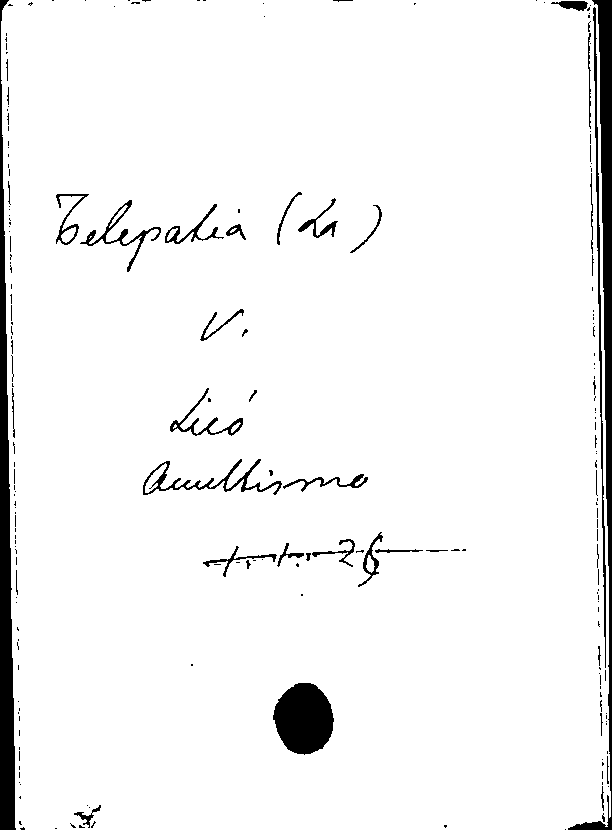 Telepatia (La)
V.
Licó
Ocultismo
1. 1. 26